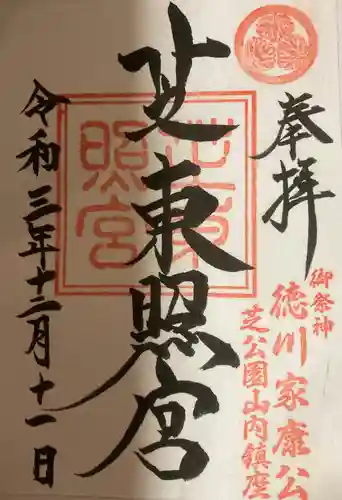 奉拝
御祭神
徳川家康公
芝公園山内鎮座
芝東照宮
芝東照宮
令和三年十二月十一日